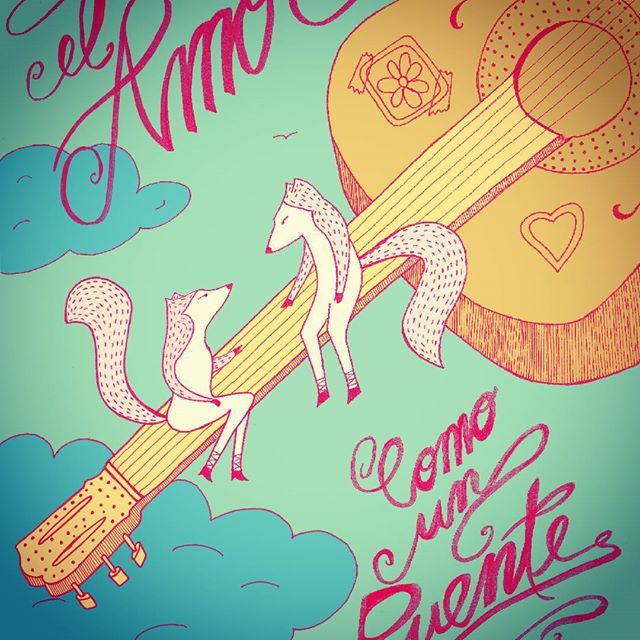 el Amor
Como
un
Puente